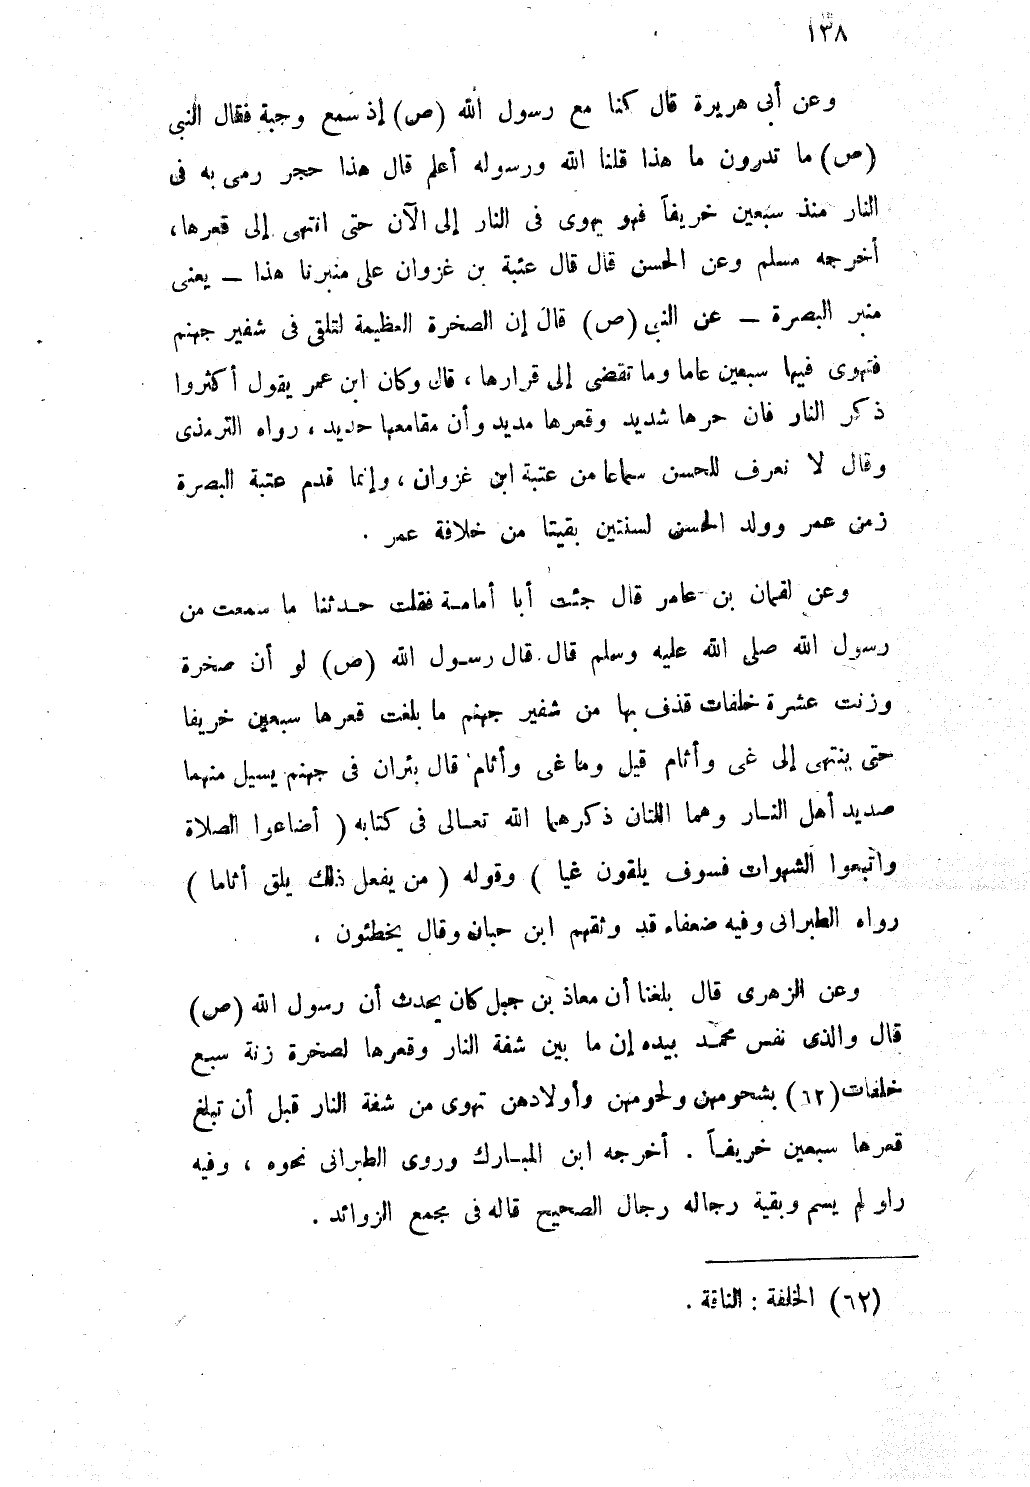 ١٣٨
وعن أبى هريرة قال كنا مع رسول الله (ص) إذ سمع وجبة فقال النبى
(ص) ما تدرون ما هذا قلنا الله ورسوله أعلم قال هذا حجر رمى به فى
النار منذ سبعين خريفاً فهو يهوى فى النار إلى الآن حتى انتهى إلى قعرها،
أخرجه مسلم وعن الحسن قال قال عتبة بن غزوان على منبرنا هذا — يعنى
منبر البصرة — عن النبى (ص) قال إن الصخرة العظيمة لتلقى فى شفير جهنم
فتهوى فيها سبعين عاما وما تقضى إلى قرارها، قال وكان ابن عمر يقول أكثروا
ذكر النار فان حرها شديد وقعرها مديد وأن مقامعها حديد، رواه الترمذى
وقال لا نعرف للحسن سماعا من عتبة ابن غزوان، وإنما قدم عتبة البصرة
زمن عمر وولد الحسن لسنتين بقيتا من خلافة عمر .
وعن لقمان بن عامر قال جئت أبا أمامة فقلت حدثنا ما سمعت من
رسول الله صلى الله عليه وسلم قال قال رسول الله (ص) لو أن صخرة
وزنت عشرة خلفات قذف بها من شفير جهنم ما بلغت قعرها سبعين خريفا
حتى ينتهى إلى غى وأثام قيل وما غى وأثام قال بئران فى جهنم يسيل منهما
صديد أهل النار وهما اللتان ذكرهما الله تعالى فى كتابه ( أضاعوا الصلاة
واتبعوا الشهوات فسوف يلقون غيا ) وقوله ( من يفعل ذلك يلق أثاما )
رواه الطبرانى وفيه ضعفاء قد وثقهم ابن حبان وقال يخطئون .
وعن الزهرى قال بلغنا أن معاذ بن جبل كان يحدث أن رسول الله (ص)
قال والذى نفس محمد بيده إن ما بين شفة النار وقعرها لصخرة زنة سبع
خلفات (٦٢) بشحومهن ولحومهن وأولادهن تهوى من شفة النار قبل أن تبلغ
قعرها سبعين خريفاً . أخرجه ابن المبارك وروى الطبرانى نحوه ، وفيه
راو لم يسم وبقية رجاله رجال الصحيح قاله فى مجمع الزوائد .
(٦٢) الخلفة : الناقة .